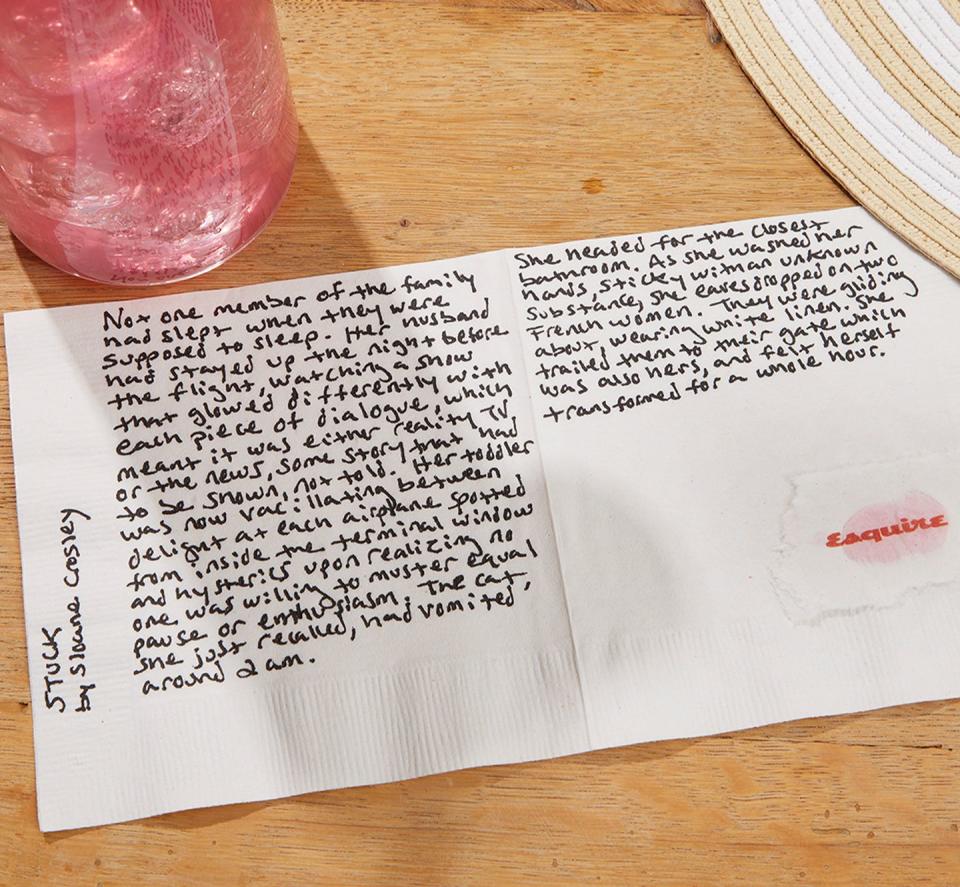 STUCK
by Sloane Crosley
Not one member of the family
had slept when they were
supposed to sleep. Her husband
had stayed up the night before
the flight, watching a show
that glowed differently with
each piece of dialogue, which
meant it was either reality TV
or the news, some story that had
to be shown, not told. Her toddler
was now vacillating between
delight at each airplane spotted
from inside the terminal window
and hysterics upon realizing no
one was willing to muster equal
pause or enthusiasm. The cat,
she just recalled, had vomited
around 2 am.
She headed for the closest
bathroom. As she washed her
hands, sticky with an unknown
substance, she eavesdropped on two
French women. They were gliding
about, wearing white linen. She
trailed them to their gate which
was also hers, and felt herself
transformed for a whole hour.
Esquire